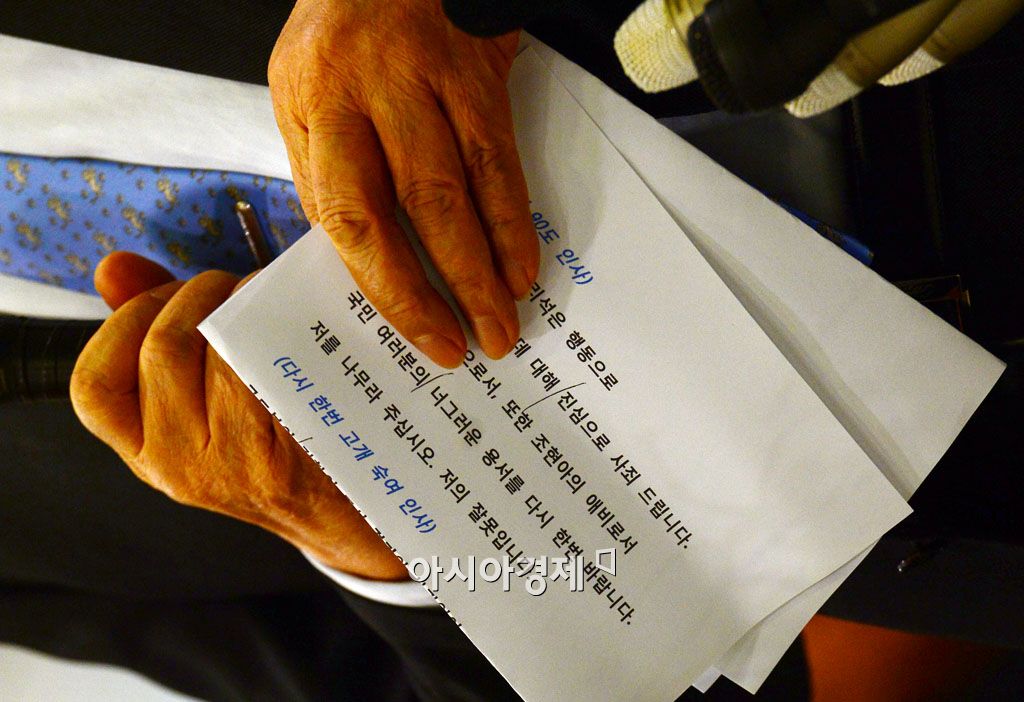 90도 인사)
석은 행동으로
데 대해 진심으로 사죄 드립니다.
으로서, 또한 조현아의 애비로서
국민 여러분의 너그러운 용서를 다시 한번 바랍니다.
저를 나무라 주십시오. 저의 잘못입니다.
(다시 한번 고개 숙여 인사)
아시아경제